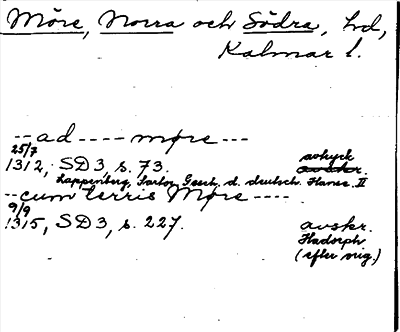 Möre, Norra och Södra, hd,
Kalmar l.
--ad----møre---
25/7 avtryck
1312, SD 3 s. 73. avskr.
Lappenberg, Sartor. Gesch. d. deutsch. Hanse II
--cum terris Møre----
9/9
1315, SD 3, s. 227. avskr.
Hadorph
(efter orig.)